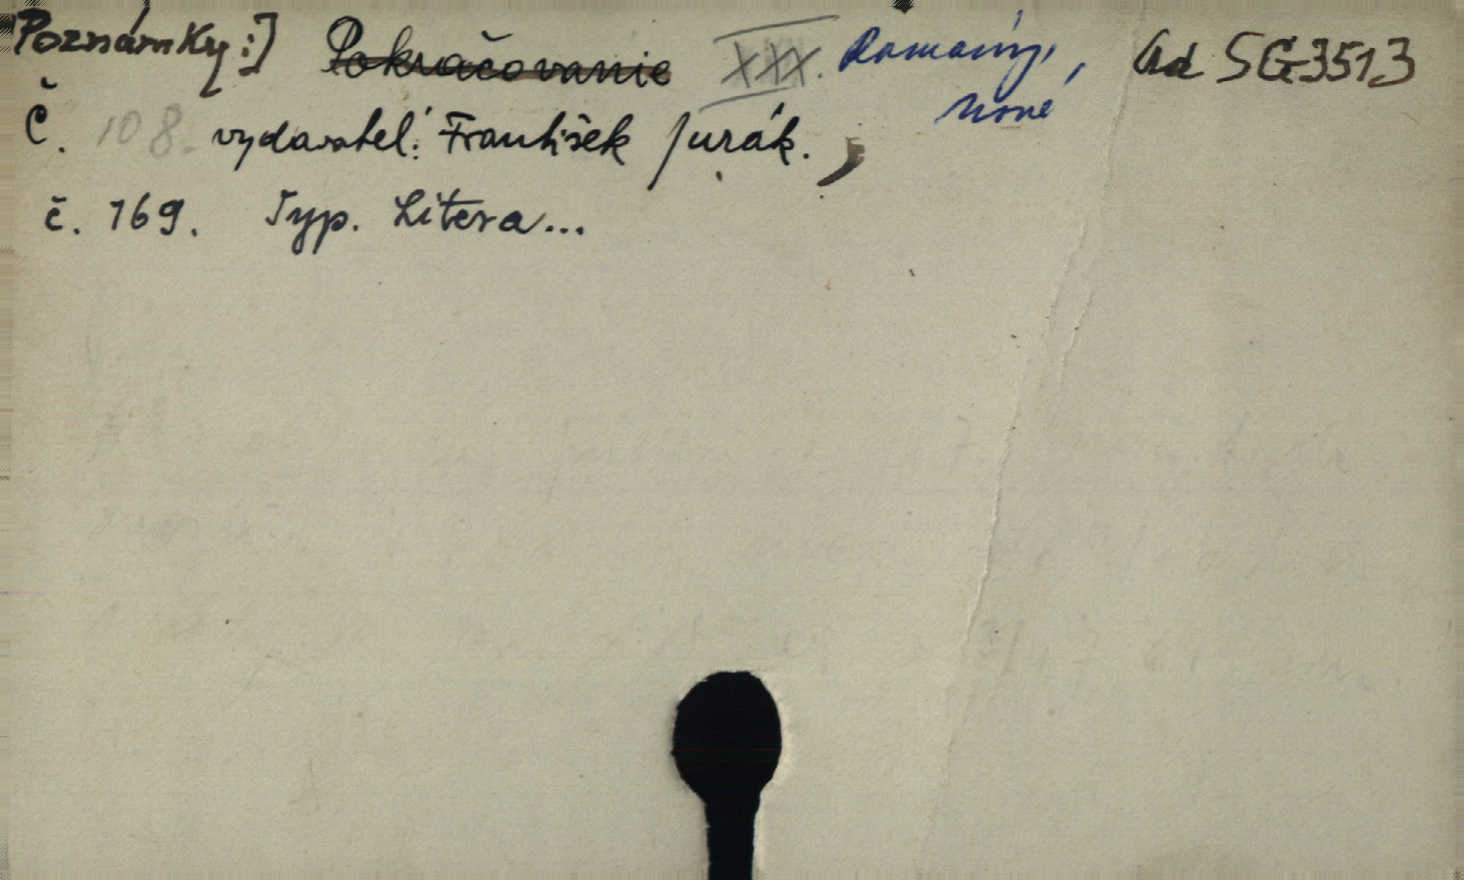 Poznámky:] Pokračovanie XXX. Romány, Ad SG3513
nové
Č. 108. vydavateľ: František Jurák.,
č. 169. Typ. Litera...